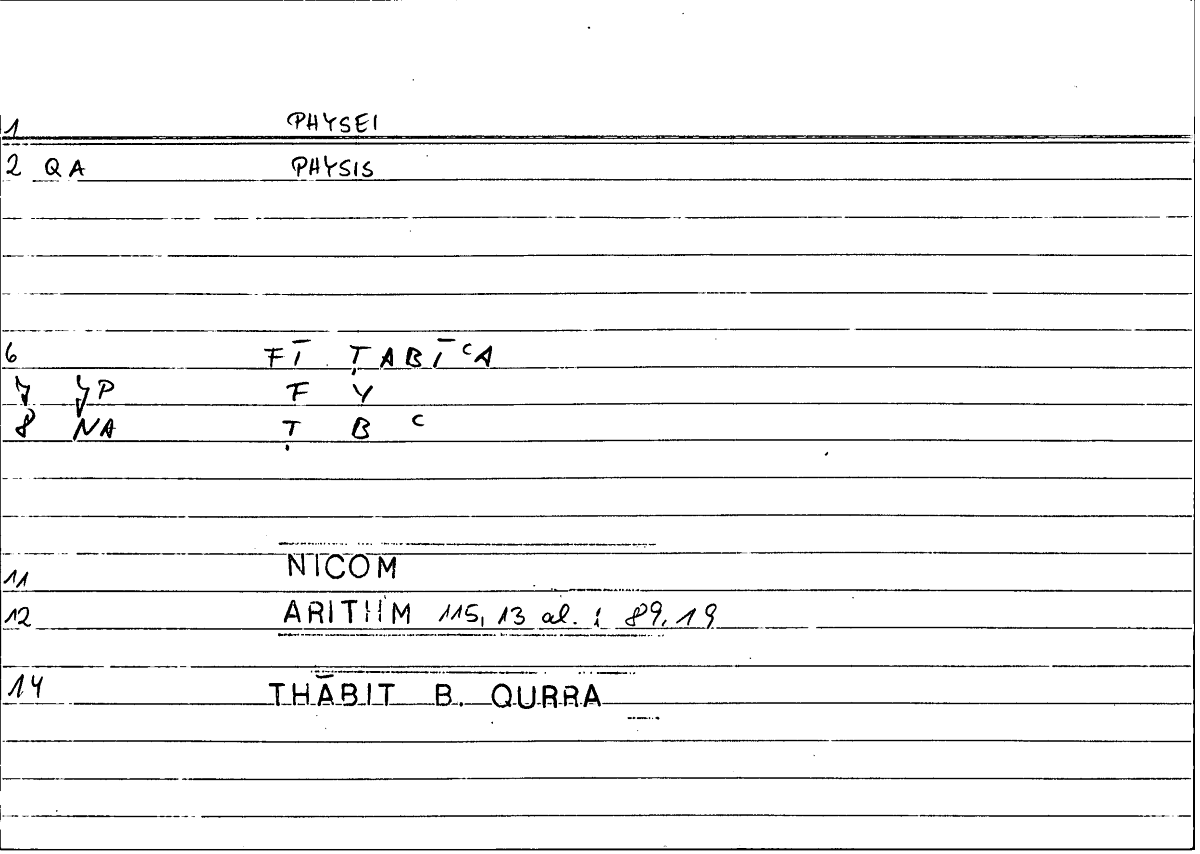 1 PHYSEI
2 QA PHYSIS
6 FĪ ṬABĪ ͨA
7 YP F Y
8 NA Ṭ B ͨ
11 NICOM
12 ARITHM 115, 13 al. ; 89, 19
14 THĀBIT B. QURRA